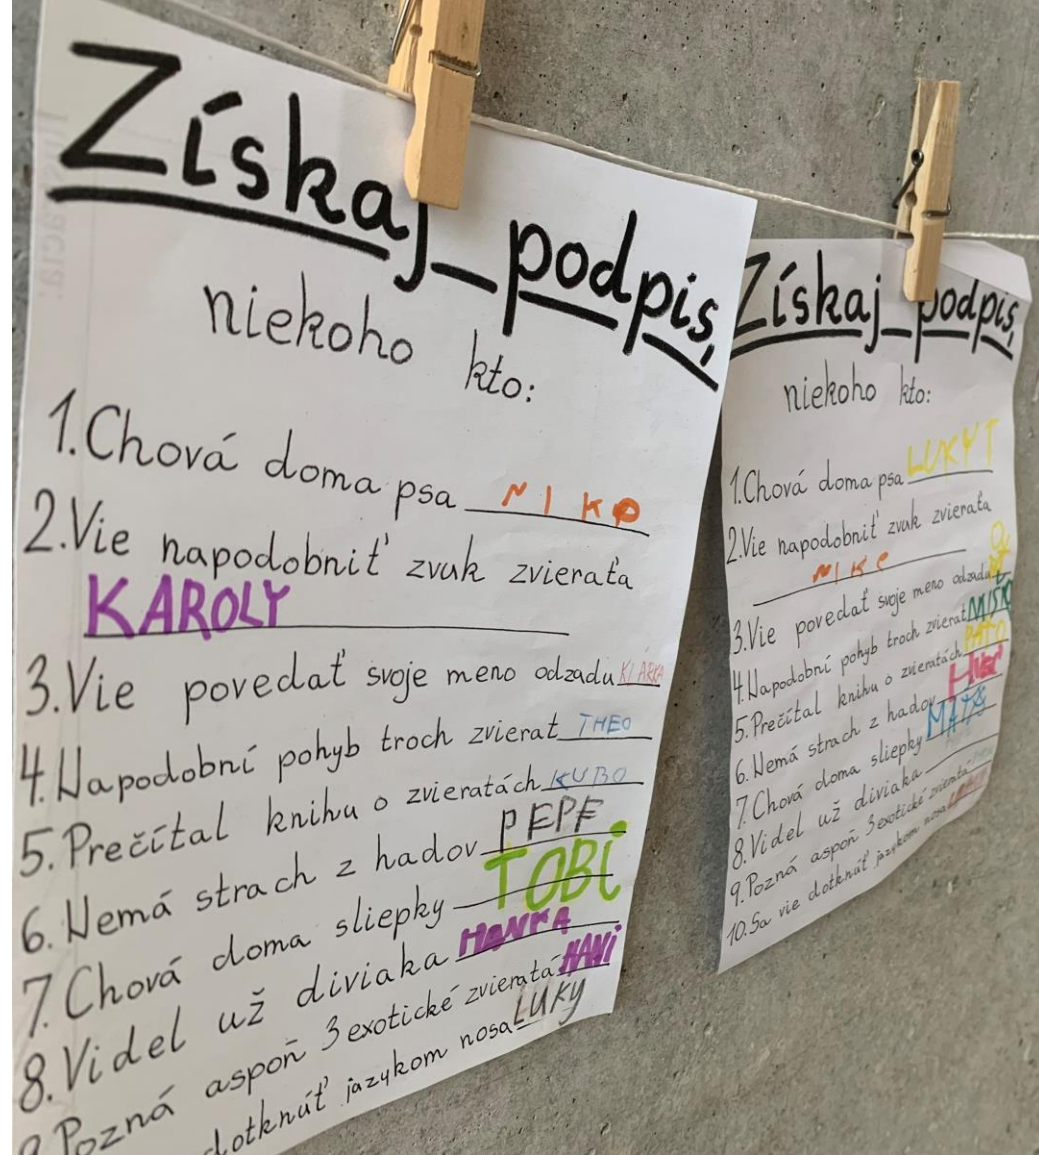 Získaj podpis,
niekoho kto:
1. Chová doma psa NIKO
2. Vie napodobniť zvuk zvieraťa
KAROLY
3. Vie povedať svoje meno odzadu KLÁRKA
4. Napodobní pohyb troch zvierat THEO
5. Prečítal knihu o zvieratách KUBO
6. Nemá strach z hadov PEPE
7. Chová doma sliepky TOBI
8. Videl už diviaka HANKA
9. Pozná aspoň 3 exotické zvieratá HANI
dotknúť jazykom nosa LUKY
Získaj podpis,
niekoho kto:
1. Chová doma psa
2. Vie napodobniť zvuk zvieraťa
3. Vie povedať svoje meno odzadu
4. Napodobní pohyb troch zvierat
5. Prečítal knihu o zvieratách PAŤO
6. Nemá strach z hadov
7. Chová doma sliepky
8. Videl už diviaka
9. Pozná aspoň 3 exotické zvieratá
10. Sa vie dotknúť jazykom nosa